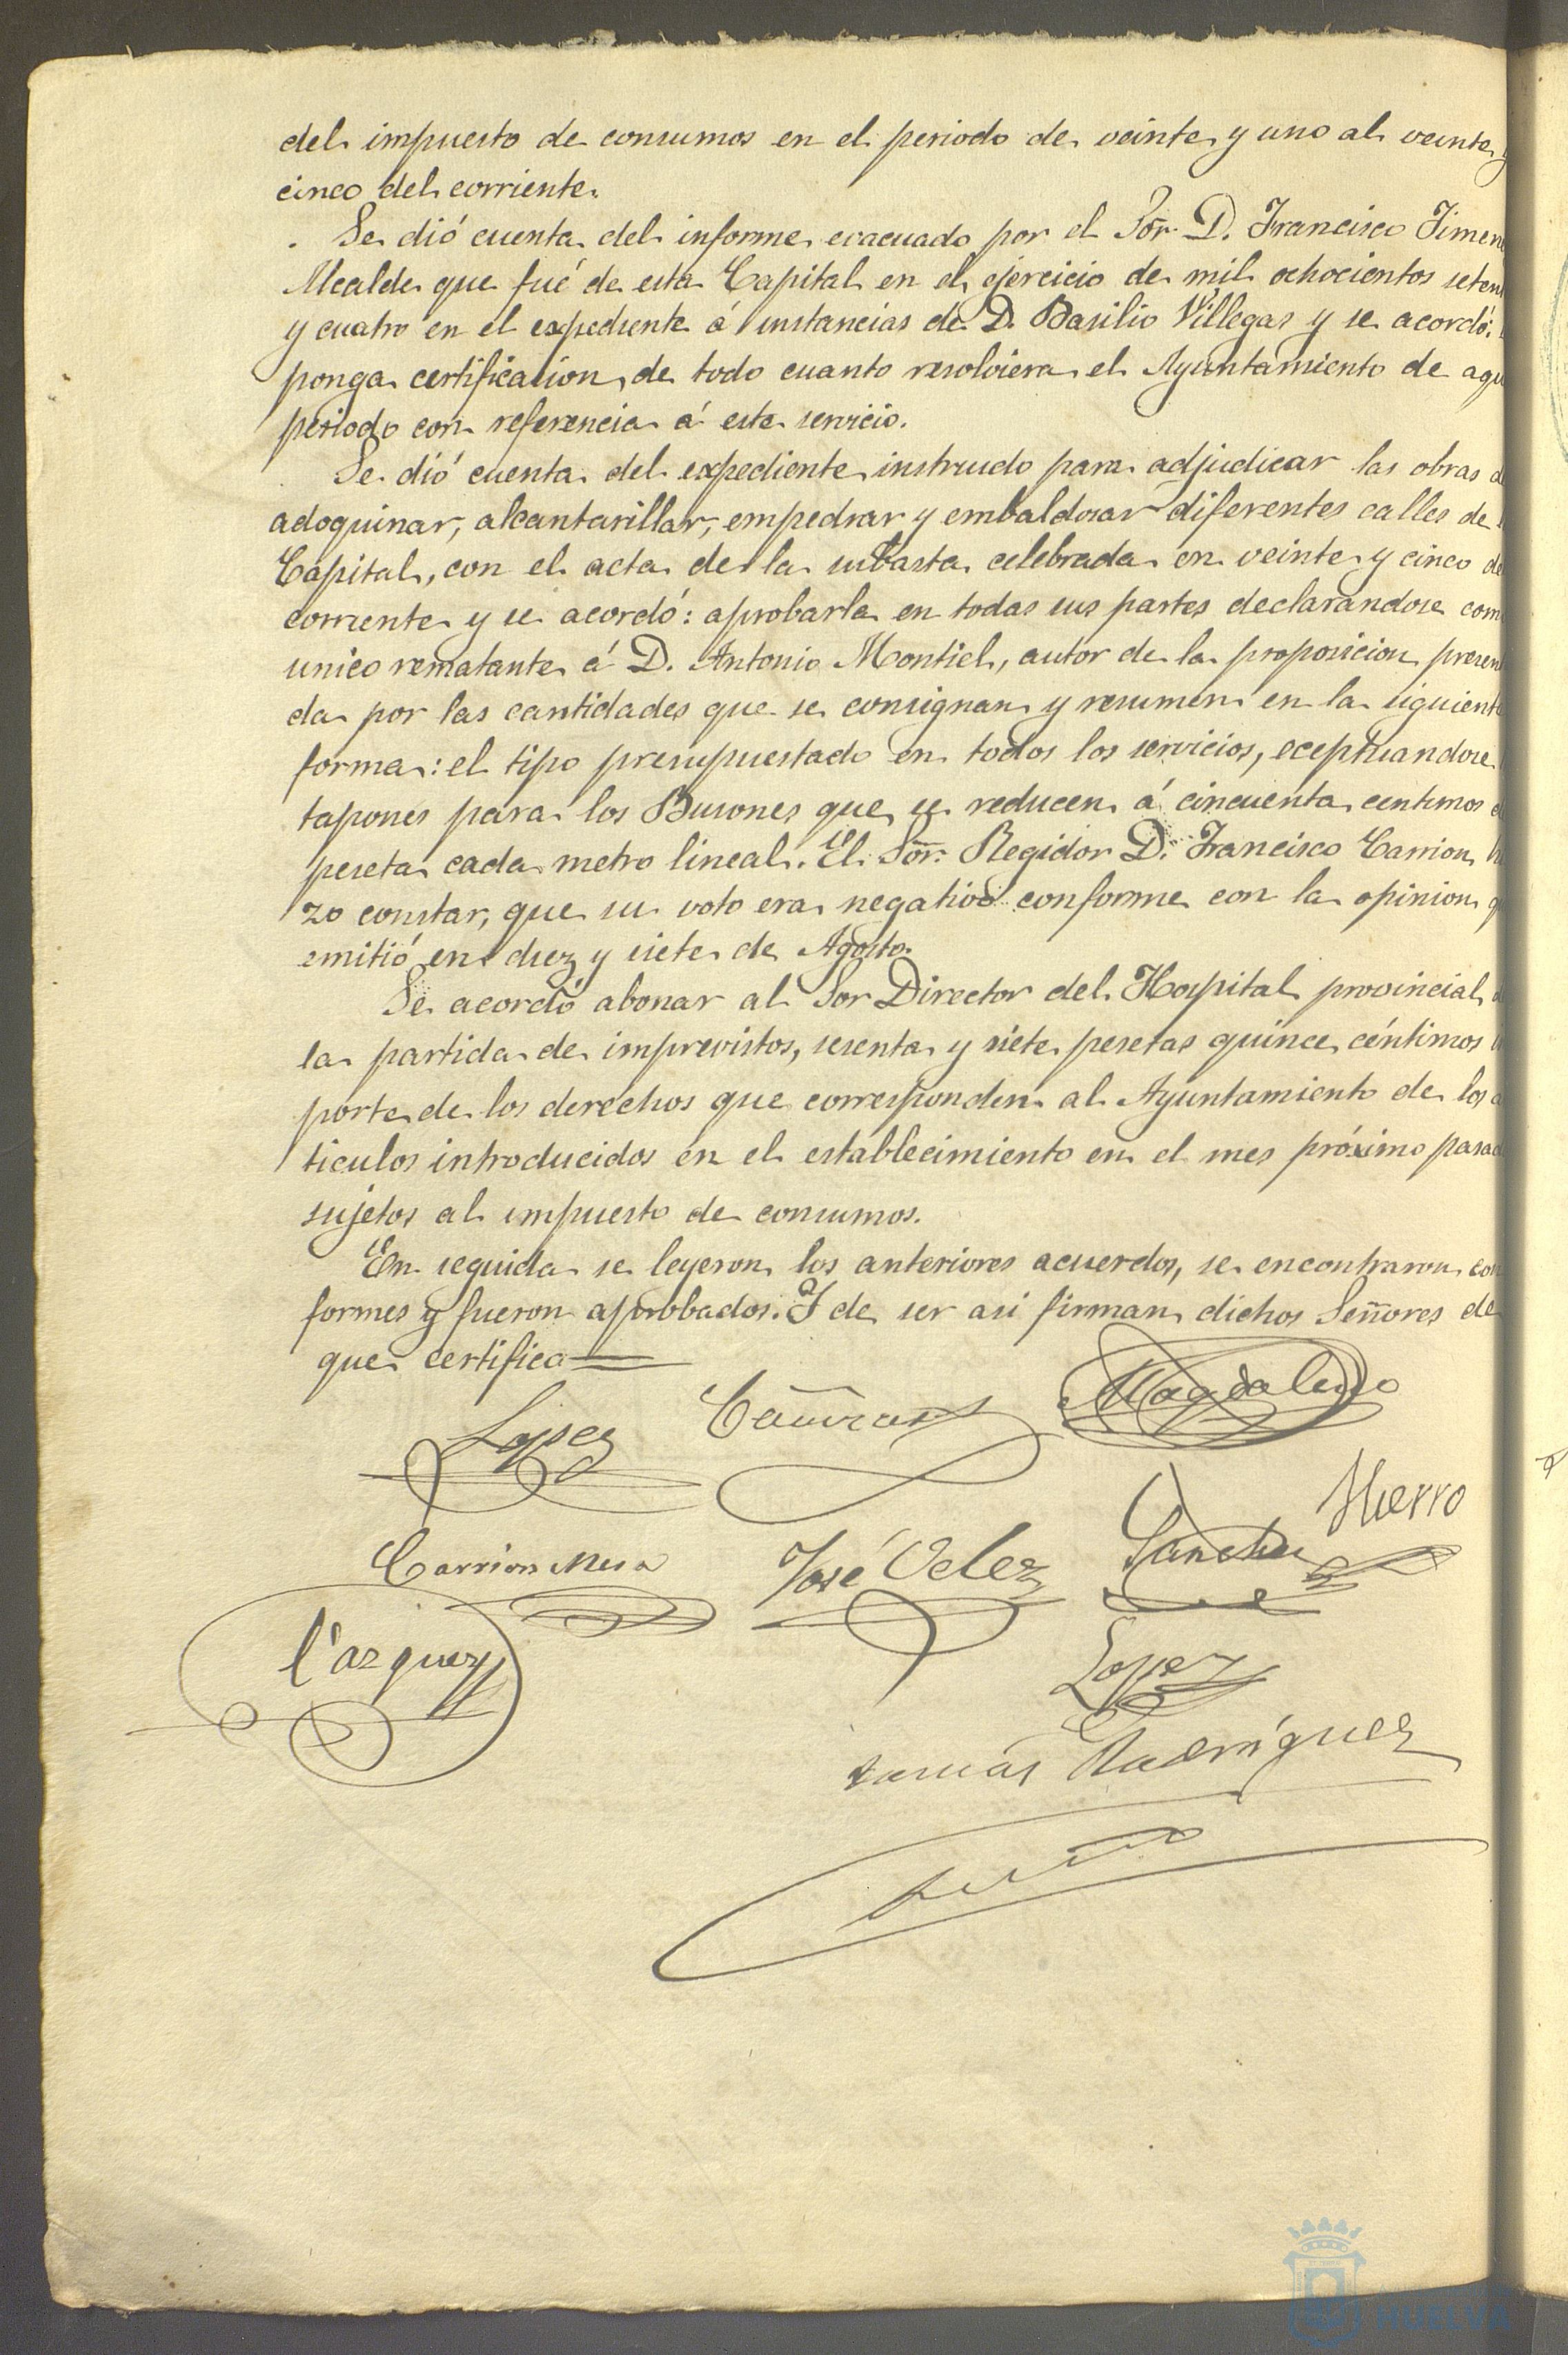 del impuesto de consumos en el periodo de veinte y uno al veinte y
cinco del corriente.
Se dió cuenta del informe evacuado por el Sor. D. Francisco Jimen
Alcalde que fué de esta Capital en el ejercicio de mil ochocientos seten
y cuatro en el expediente á instancias de D. Basilio Villegas y se acordó:
ponga certificacion de todo cuanto resolviera el Ayuntamiento de aqu
periodo con referencia á este servicio.
Se dió cuenta del expediente instruido para adjudicar las obras d
adoquinar, alcantarillar, empedrar y embaldosar diferentes calles de
Capital, con el acta de la subasta celebrada en veinte y cinco de
corriente y se acordó: aprobarla en todas sus partes declarandose com
unico rematante á D. Antonio Montiel, autor de la proposicion presen
da por las cantidades que se consignan y resumen en la siguiente
forma: el tipo presupuestado en todos los servicios, eceptuandose
tapones para los Busones que se reducen á cincuenta centimos d
peseta cada metro lineal. El Sor. Regidor D. Francisco Carrion hi
zo constar, que su voto era negativo conforme con la opinion q
emitió en diez y siete de Agosto.
Se acordó abonar al Sor Director del Hospital provincial d
la partida de imprevistos, sesenta y siete pesetas quince céntimos im
porte de los derechos que corresponden al Ayuntamiento de los a
ticulos introducidos en el establecimiento en el mes próximo pasad
sujetos al impuesto de consumos.
En seguida se leyeron los anteriores acuerdos, se encontraron con
formes y fueron aprobados. Y de ser asi firman dichos Señores de
que certifico
Lopez Magdaleno
Hierro
Carrion Mesa José Velez Sanchez
Vazquez
Lopez
Tomás Rodríguez
HUELVA